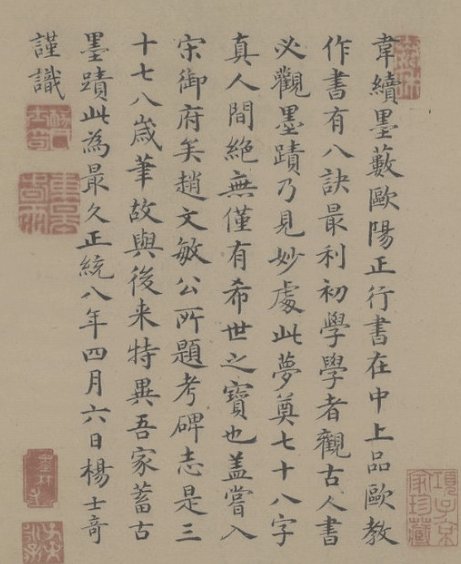 韋續墨藪歐陽正行書在中上品歐教
作書有八訣最利初學學者觀古人書
必觀墨蹟乃見妙處此夢奠七十八字
真人間絶無僅有希世之寶也盖嘗入
宋御府矣趙文敏公所題考碑志是三
十七八歲筆故與後来特異吾家蓄古
墨蹟此為最久正統八年四月六日楊士奇
謹識
項子京
家珍藏